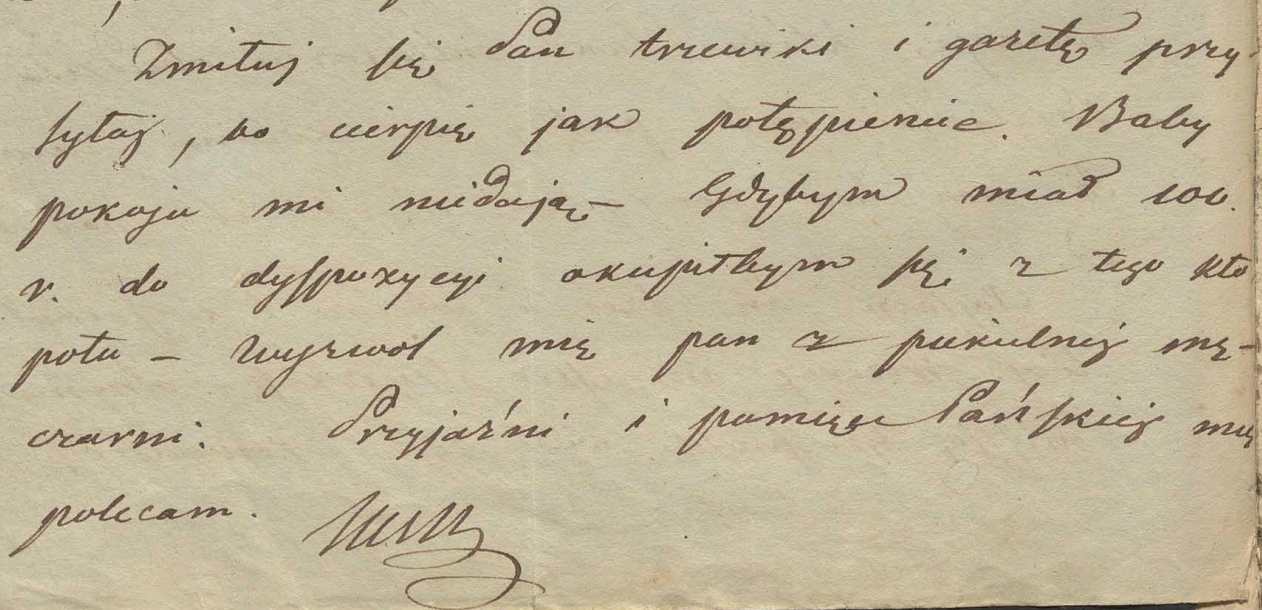 Zmiłuj się Pan trzewiki i gazetę przy
syłaj, bo cierpię jak potępieniec. Baby
pokoju mi niedają — Gdybym miał 100.
r. do dyspozycyi okupiłbym się z tego kło
potu — Wyzwol mię pan z piekielnéj mę-
czarni. Przyjaźni i pamięci Pańskiéj mię
polecam.